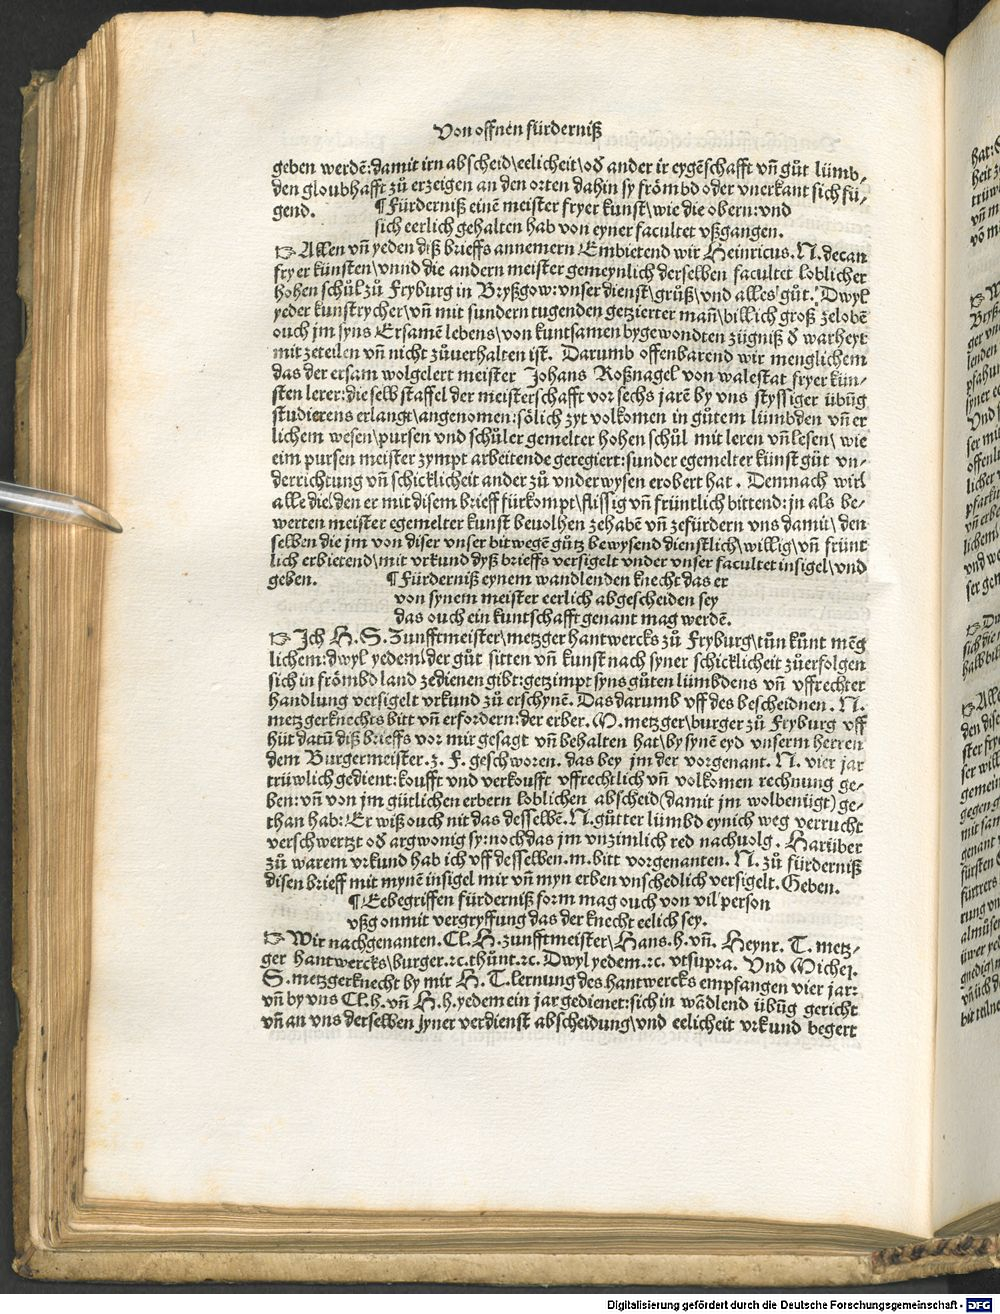 Von offnen fürderniß
geben werdē: damit irn abscheid\eelicheit\oď ander ir eygēschafft vn̄ gůt lümb⸗
den gloubhafft zů erzeigen an den orten dahin sy frömbd oder vnerkant sich fü⸗
gend. ¶ Fürderniß einē meister fryer kunst\wie die obern: vnd
sich eerlich gehalten hab von eyner facultet vßgangen.
☞ Allen vn̄ yeden diß brieffs annemern Embietend wir Heinricus. N. decan
fryer künsten\vnnd die andern meister gemeynlich derselben facultet loblicher
hohen schůl zů Fryburg in Bryßgow: vnser dienst\grůß\vnd alles gůt. Dwyl
yeder kunstrycher\vn̄ mit sundern tugenden getzierter man̄\billich groß zelobē
ouch jm syns Ersamē lebens\von kuntsamen bygewondten zügniß ď warheyt
mit zeteilen vn̄ nicht zůuerhalten ist. Darumb offenbarend wir menglichem
das der ersam wolgelert meister Johans Roßnagel von walestat fryer kün⸗
sten lerer: die selb staffel der meisterschafft vor sechs jarē by vns styssiger übůg
studierens erlangt\angenomen: sölich zyt volkomen in gůtem lümbden vn̄ er
lichem wesen\pursen vnd schůler gemelter hohen schůl mit leren vn̄ lesen\ wie
eim pursen meister zympt arbeitende geregiert: sunder egemelter künst gůt vn⸗
derrichtung vn̄ schicklicheit ander zů vnderwysen erobert hat. Demnach wirt
alle die\den er mit disem brieff fürkompt\flissig vn̄ früntlich bittend: jn als be⸗
werten meister egemelter kunst beuolhen zehabē vn̄ zefürdern vns damit\ den
selben die jm von diser vnser bit wegē gůtz bewysend dienstlich\willig\vn̄ frünt
lich erbietend\mit vrkund dyß brieffs versigelt vnder vnser facultet insigel\vnd
geben. ¶ Fürderniß eynem wandlenden knecht das er
von synem meister eerlich abgescheiden sey
das ouch ein kuntschafft genant mag werdē.
☞ Ich H. S. Zunfftmeister\metzger hantwercks zů Fryburg\tůn kůnt mēg
lichem: dwyl yedem\der gůt sitten vn̄ kunst nach syner schicklicheit zůerfolgen
sich in frömbd land zedienen gibt: getz impt syns gůten lümbdens vn̄ vffrechter
handlung versigelt vrkund zů erschynē. Das darumb vff des bescheidnen. N.
metzgerknechts bitt vn̄ erfordern: der erber. M. metzger\burger zů Fryburg vff
hüt datū diß brieffs vor mir gesagt vn̄ behalten hat\by synē eyd vnserm herren
dem Burgermeister. z. F. geschworen. das bey jm der vorgenant. N. vier jar
trüwlich gedient: koufft vnd verkoufft vffrechtlich vn̄ volkomen rechnung ge⸗
ben: vn̄ von jm gütlichen erbern loblichen abscheid (damit jm wolbenügt) ge⸗
than hab: Er wiß ouch nit das desselbē. N. gůtter lümbd eynich weg verrucht
verschwertzt oď argwonig sy: noch das jm vnzimlich red nachuolg. Harüber
zů warem vrkund hab ich vff desselben. m. bitt vorgenanten. N. zů fürderniß
disen brieff mit mynē insigel mir vn̄ myn erben vnschedlich versigelt. Geben.
¶ Eebegriffen fürderniß form mag ouch von vil person
vßgon mit vergryffung das der knecht eelich sey.
☞ Wir nachgenanten. Cl. H. zunfftmeister\Hans. h. vn̄. Heynr. T. metz⸗
ger hantwercks\burger. ꝛc. thůnt. ꝛc. Dwyl yedem. ꝛc. vtsupra. Vnd Michel.
S. metzgerknecht by mir H. T. lernung des hantwercks empfangen vier jar:
vn̄ by vns Cl. h. vn̄ H. h. yedem ein jar gedienet: sich in wādlend übůg gericht
vn̄ an vns derselben syner verdienst abscheidung\vnd eelicheit vrkund begert
Digitalisierung gefördert durch die Deutsche Forschungsgemeinschaft - DFG